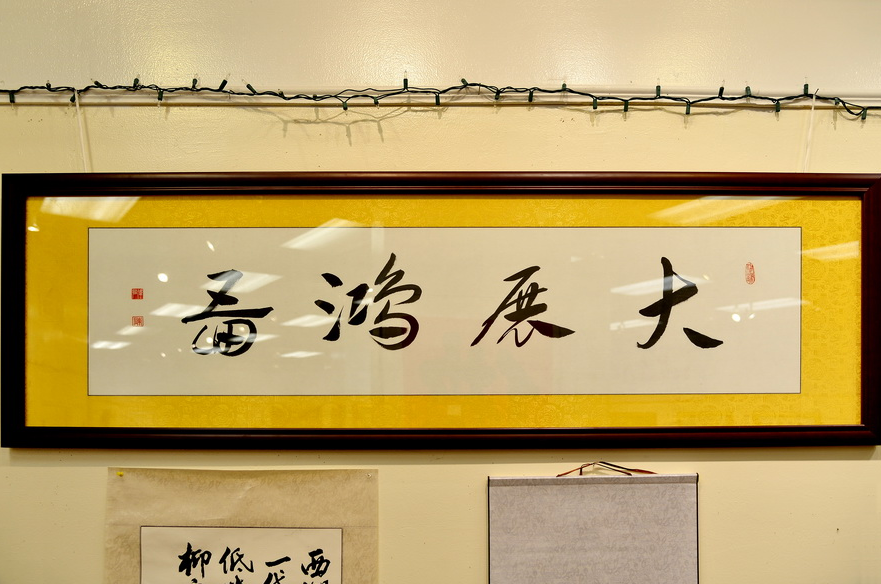 大展鴻圖
西
一
低
柳